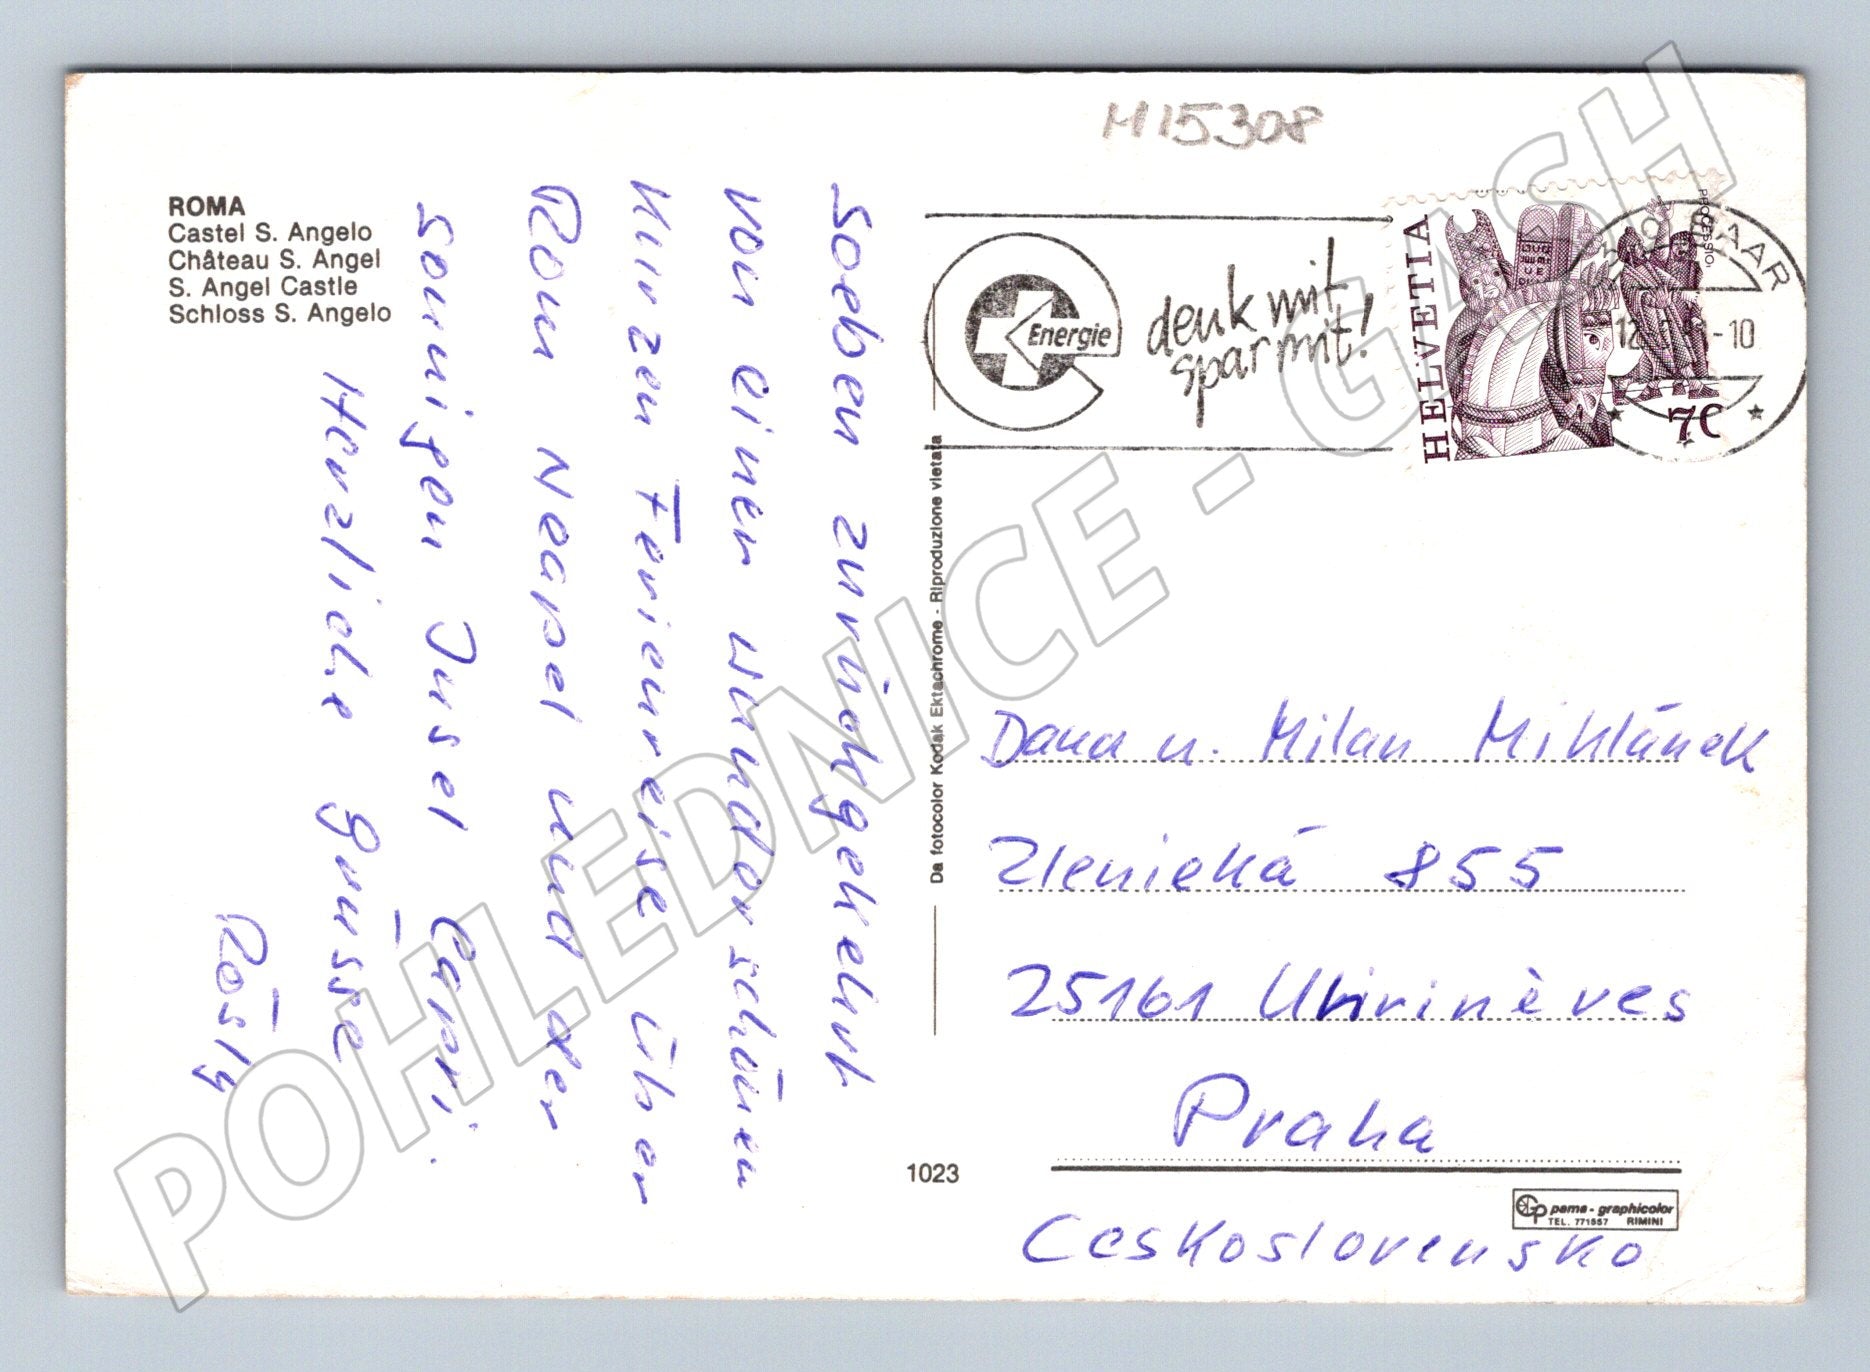 M15308
ROMA
Castel S. Angelo
Château S. Angel
S. Angel Castle
Schloss S. Angelo
Soeben zurückgekehrt
von einer wunderschönen
kurzen Ferienreise über
Rom Neapel und der
sonnigen Insel Capri.
Herzliche Grüsse
Rösly
Energie
denk mit
spar mit!
HELVETIA
70
BAAR
12. -10
Da fotocolor Kodak Ektachrome - Riproduzione vietata
Dana u. Milan Mihlánek
Zlenická 855
25161 Uhrinèves
Praha
Ceskoslovensko
1023
Gp pama - graphicolor
TEL. 771557 RIMINI
POHLEDNICE - GASH